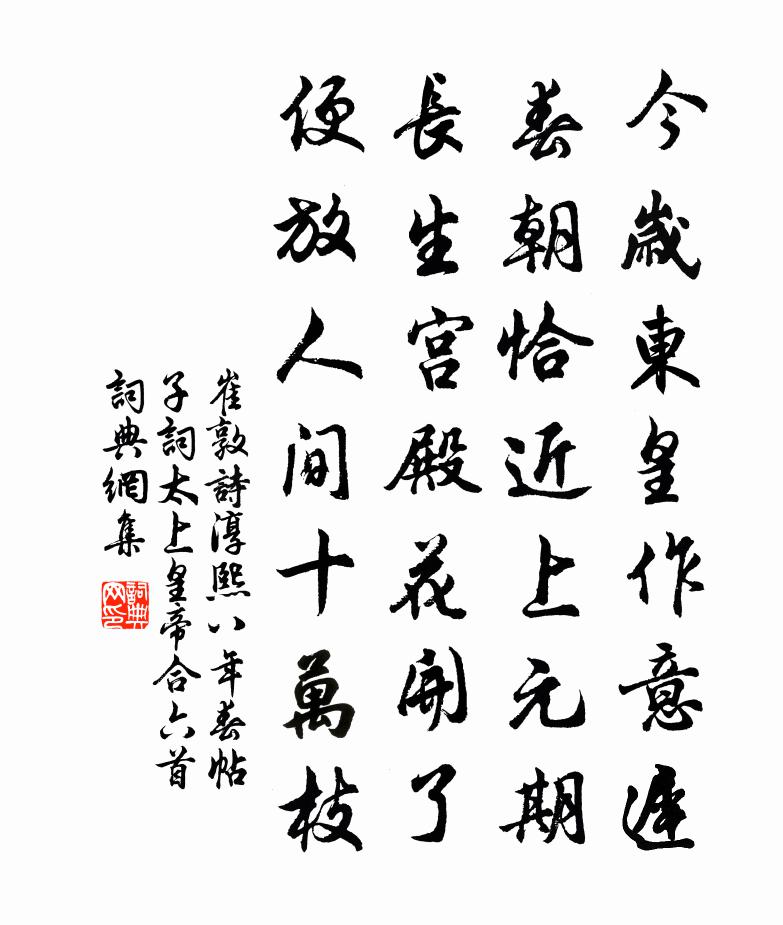 今歲東皇作意遲
春朝恰近上元期
長生宮殿花開了
便放人間十萬枝
崔敦詩淳熙八年春帖
子詞太上皇帝合六首
詞典網集
詞典网印